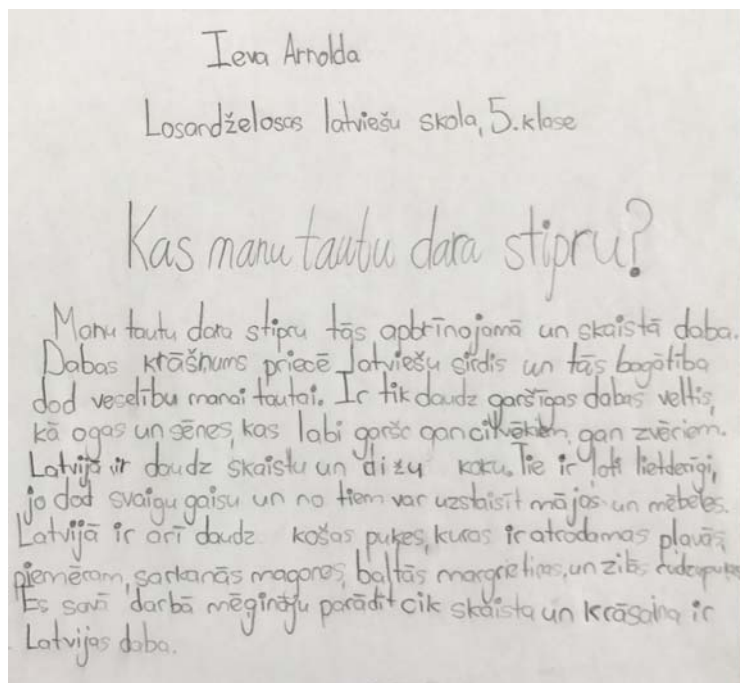 Ieva Arnolda
Losandželosas latviešu skola, 5. klase
Kas manu tautu dara stipru?
Manu tautu dara stipru tās apbrīnojamā un skaistā daba.
Dabas krāšņums priecē latviešu sirdis un tās bagātība
dod veselību manai tautai. Ir tik daudz garšīgas dabas veltis,
kā ogas un sēnes, kas labi garšo gan cilvēkiem, gan zvēriem.
Latvijā ir daudz skaistu un dižu koku. Tie ir ļoti lietderīgi,
jo dod svaigu gaisu un no tiem var uztaisīt mājas un mēbeles.
Latvijā ir arī daudz košas puķes, kuras ir atrodamas pļavās,
piemēram, sarkanās magones, baltās margrietiņas, un zilās rudzupuķes.
Es savā darbā mēģināju parādīt cik skaista un krāsaina ir
Latvijas daba.